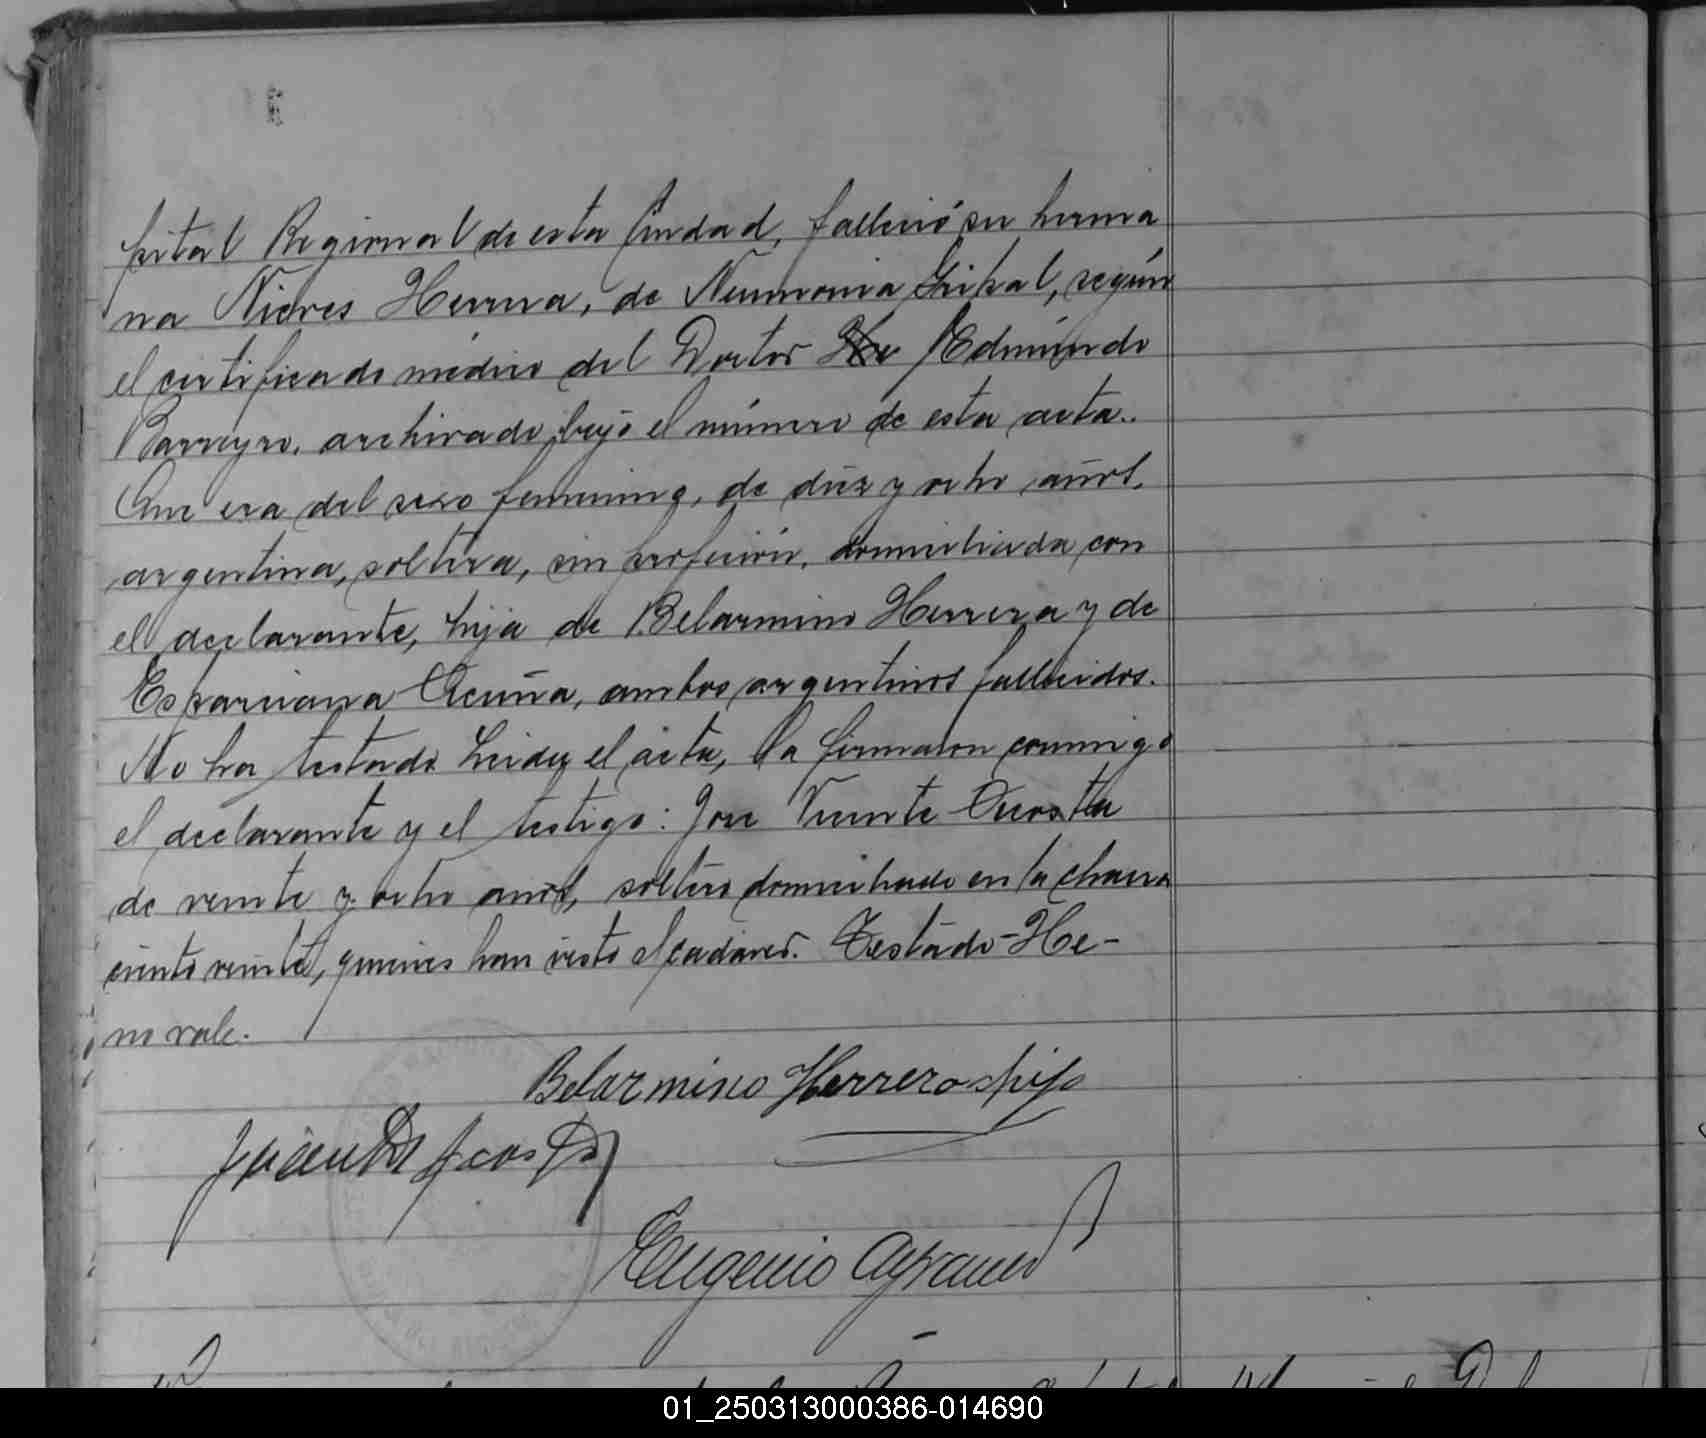 pital Regional de esta Ciudad, falleció su herma
na Nieves Herrera, de Neumonia Gripal, según
el certificado médico del Doctor He Edmundo
Barreyro, archivado bajo el número de esta acta.
Que era del sexo femenino, de diez y ocho años,
argentina, soltera, sin profesión, domiciliada con
el declarante, hija de Belarmino Herrera y de
Esparciana Acuña, ambos argentinos fallecidos.
No ha testado. Leida el acta, la firmaron conmigo
el declarante y el testigo: Jose Vicente Acosta
de veinte y ocho años, soltero domiciliado en la chacra
ciento veinte, quienes han visto el cadáver. Testado-He-
no vale.
Belarmino Herrera hijo
J Vicente Acosta
Eugenio
01_250313000386-014690